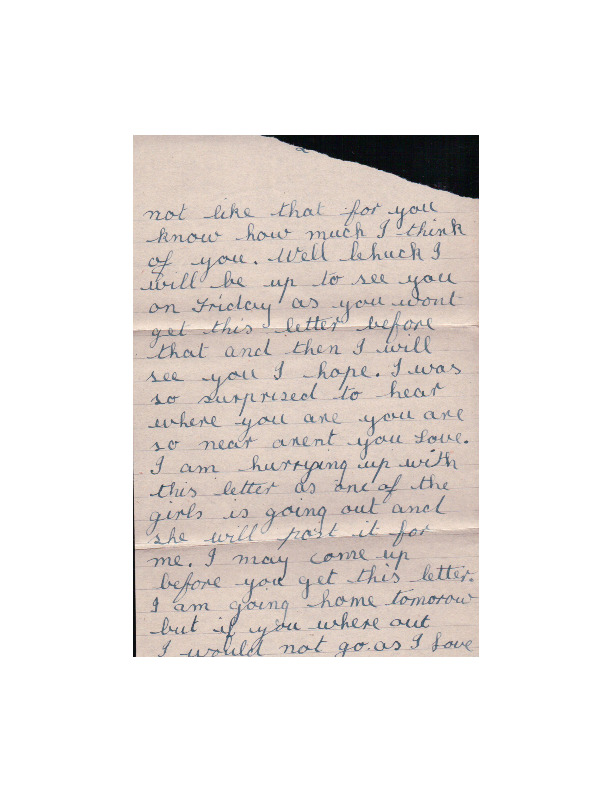 2
not like that for you
know how much I think
of you. Well lehuck I
will be up to see you
on Friday as you wont
get this letter before
that and then I will
see you I hope. I was
so surprised to hear
where you are you are
so near arent you Love.
I am hurrying up with
this letter as one of the
girls is going out and
she will post it for
me. I may come up
before you get this letter.
I am going home tomorow
but if you where out
I would not go. as I Love